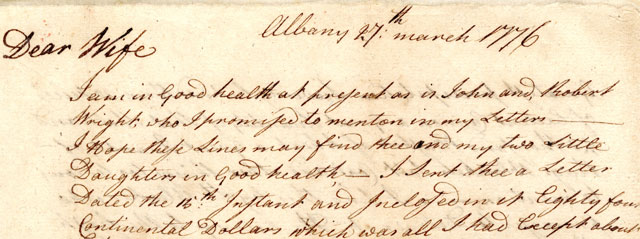 Albany 27th march 1776
Dear Wife
I am in Good health at present as is John and Robert
Wright who I promised to mention in my Letters —
I Hope these Lines may find thee and my two Little
Daughters in Good health — I Sent thee a Letter
Dated the 15th Instant and Inclosed in it Eighty four
Continental Dollars which was all I had Except about